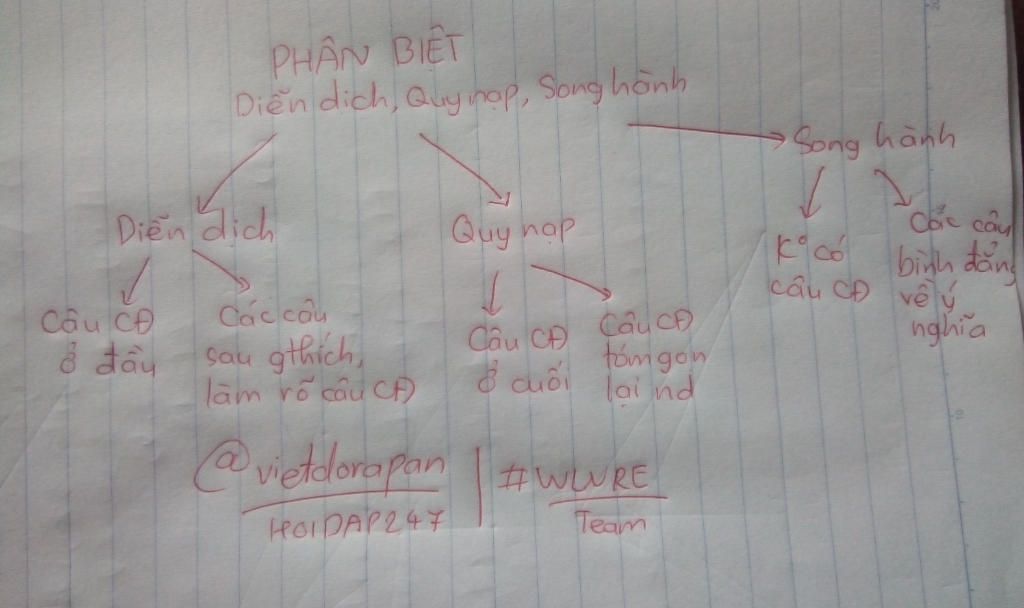 PHÂN BIỆT
Diễn dịch, Quy nạp, Song hành
Song hành
K° có
câu CĐ
Các câu
bình đẳng
về ý
nghĩa
Diễn dịch
Câu CĐ
ở đầu
Các câu
sau gthích,
làm rõ câu CĐ
Quy nạp
Câu CĐ
ở cuối
Câu CĐ
tóm gọn
lại nd
@vietdorapan
HOIDAP247
#WLWRE
Team